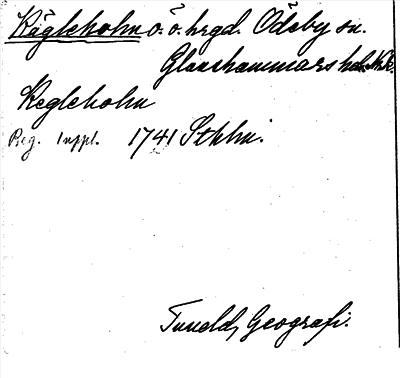 Kägleholm ö. o. hrgd. Ödeby sn.
Glanshammars hd. Nke.
Kegleholm
Reg. Suppl. 1741 Sthlm.
Tuneld, Geografi.